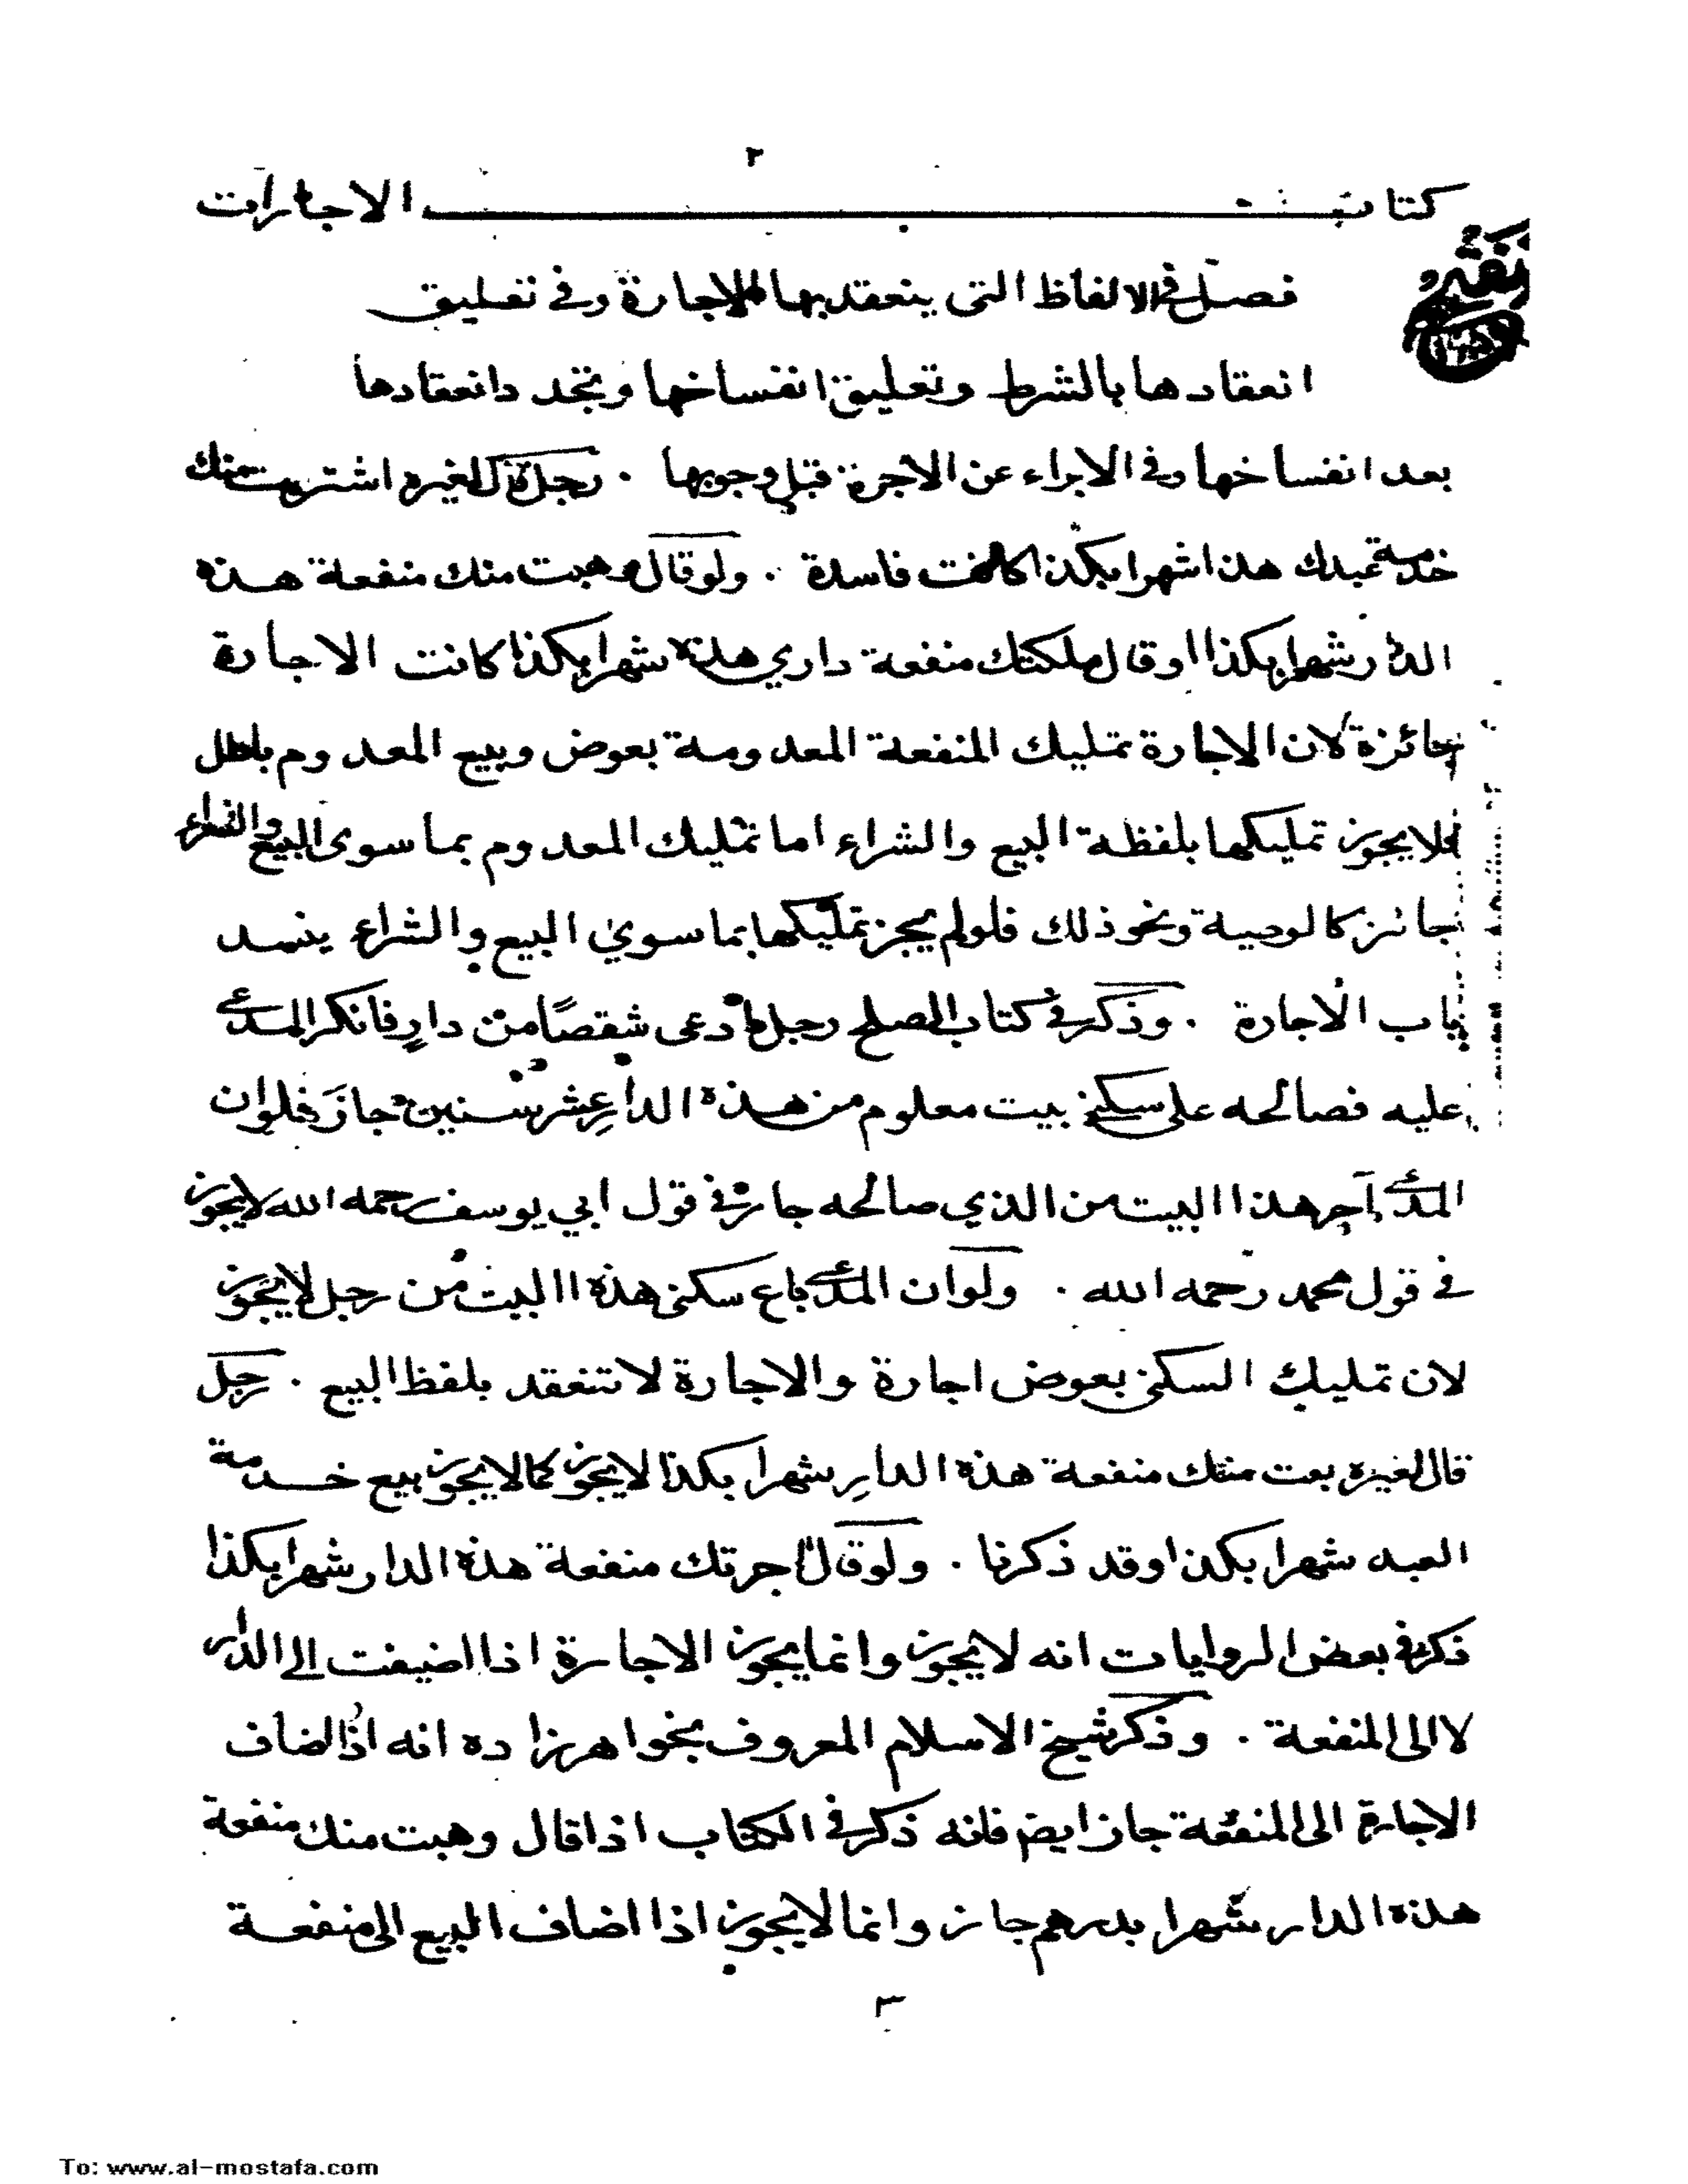 ٢
كتاب الاجارات
فصل في الالفاظ التي ينعقد بها الاجارة وفي تعليق
انعقادها بالشرط وتعليق انفساخها وتجدد انعقادها
بعد انفساخها وفي الابراء عن الاجرة قبل وجوبها . رجل قال لغيره اشتريت منك
خدمة عبدك هذا شهرا بكذا كانت فاسدة . ولو قال وهبت منك منفعة هذه
الدار شهرا بكذا او قال ملكتك منفعة داري هذه شهرا بكذا كانت الاجارة
جائزة لان الاجارة تمليك المنفعة المعدومة بعوض وبيع المعدوم باطل
فلا يجوز تمليكها بلفظة البيع والشراء اما تمليك المعدوم بما سوى البيع والشراء
جائز كالوصية ونحو ذلك فلو لم يجز تمليكها بما سوي البيع والشراء ينسد
باب الاجارة . وذكر في كتاب الصلح رجل ادعى شقصًا من دارٍ فانكر المدعى
عليه فصالحه على سكنى بيت معلوم من هذه الدارِ عشر سنين جازَ فلو ان
المدعي آجر هذا البيت من الذي صالحه جاز في قول ابي يوسف رحمه الله لا يجوز
في قول محمد رحمه الله . ولو ان المدعي باع سكنى هذه البيت من رجل لا يجوز
لان تمليك السكنى بعوض اجارة والاجارة لا تنعقد بلفظ البيع . رجل
قال لغيره بعت منك منفعة هذه الدارِ شهرا بكذا لا يجوز كما لا يجوز بيع خدمة
العبد شهرا بكذا وقد ذكرنا . ولو قال اجرتك منفعة هذه الدار شهرا بكذا
ذكر في بعض الروايات انه لا يجوز وانما يجوز الاجارة اذا اضيفت الى الدار
لا الى المنفعة . وذكر شيخ الاسلام المعروف بخواهر زاده انه اذا اضاف
الاجارة الى المنفعة جاز ايضا فانه ذكر في الكتاب اذا قال وهبت منك منفعة
هذه الدار شهرا بدرهم جاز وانما لا يجوز اذا اضاف البيع الى منفعة
٣
To: www.al-mostafa.com